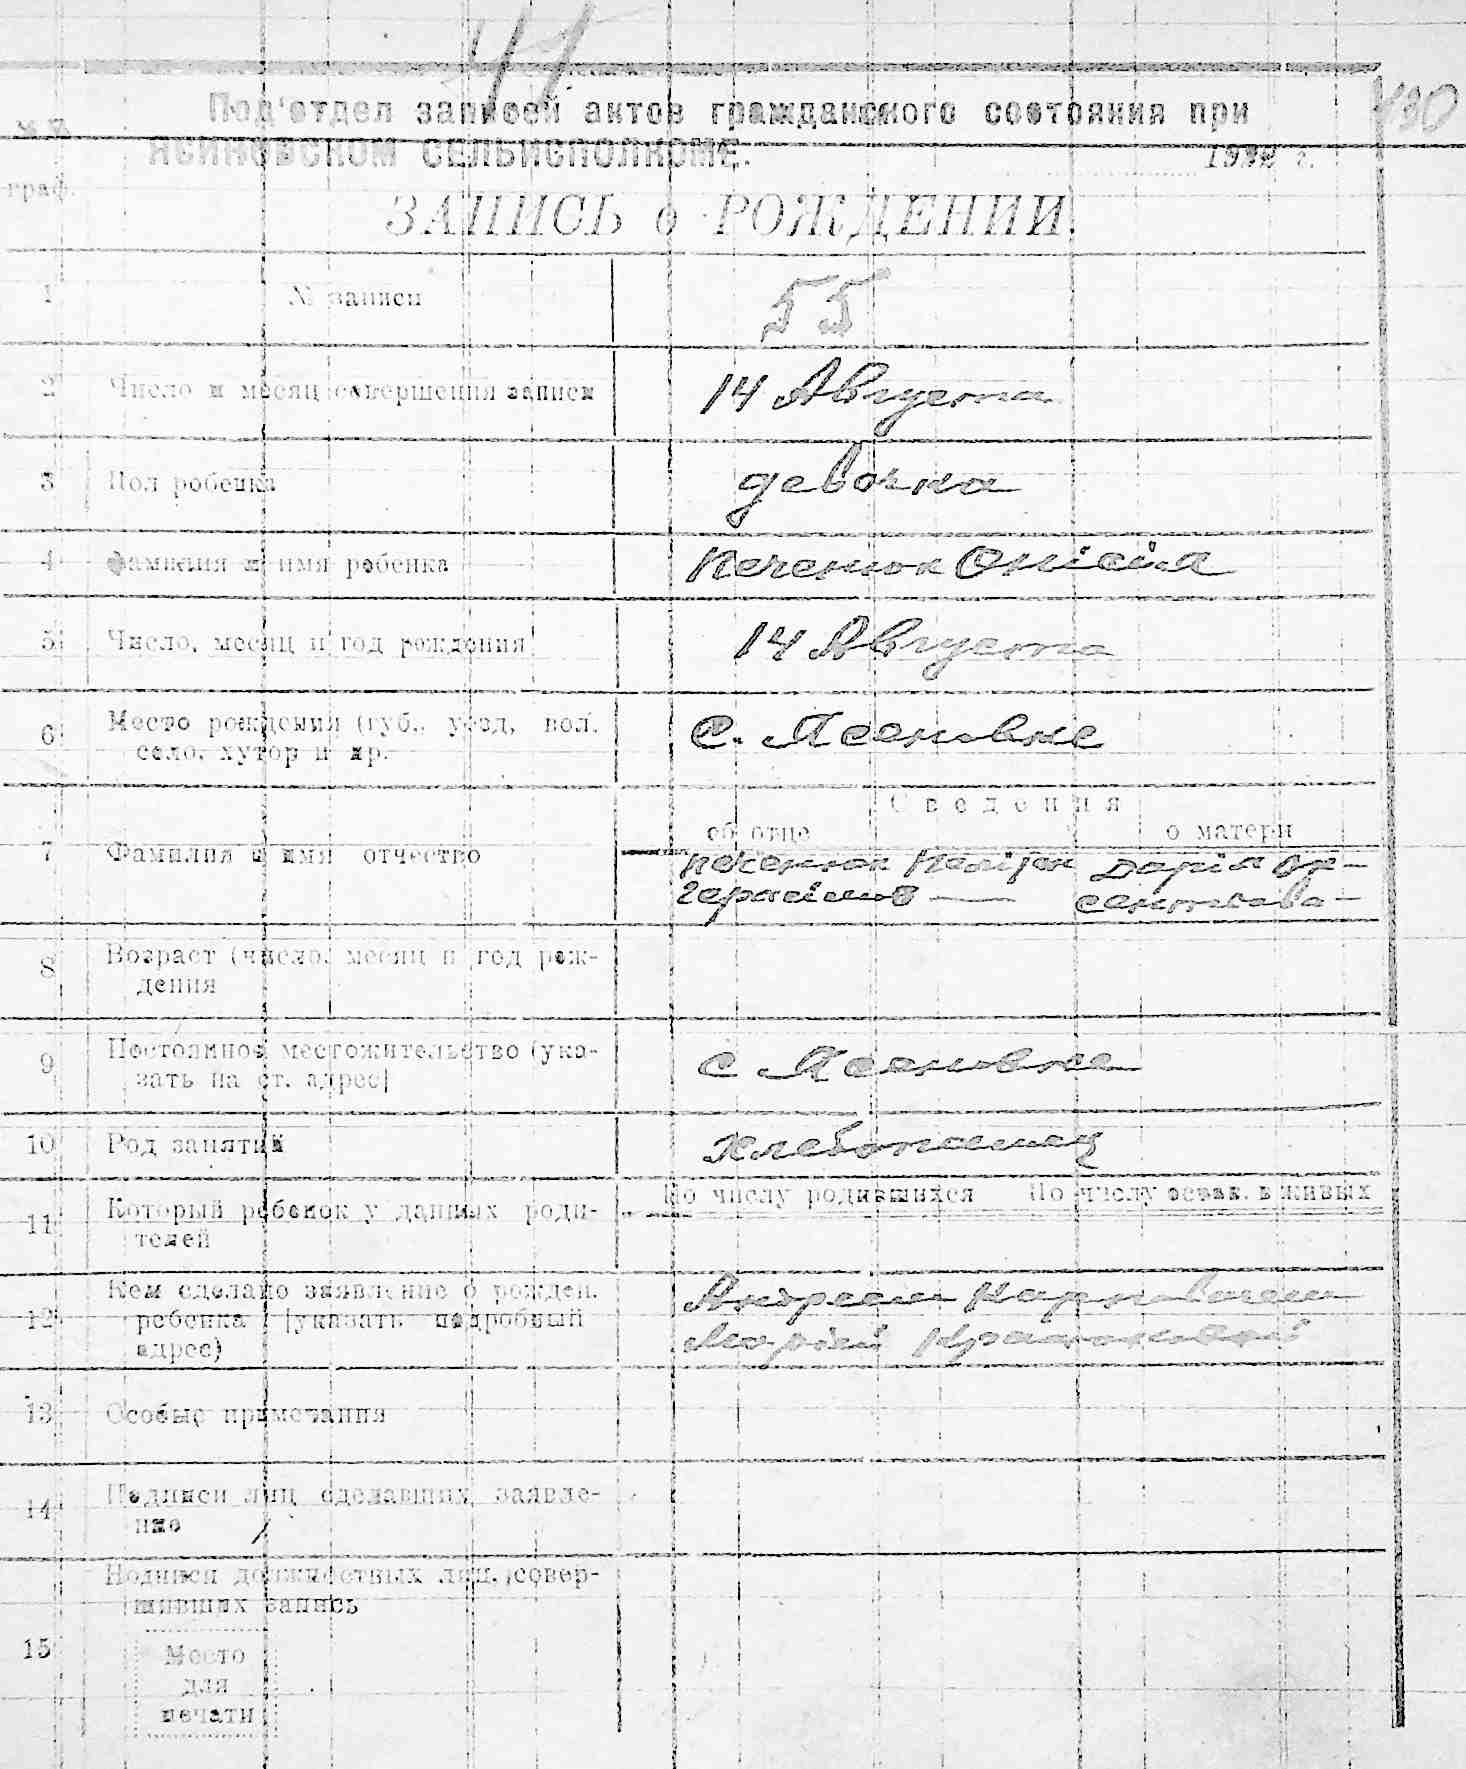 41
430
Под'отдел записей актов гражданского состояния при
ЯСИНОВСКОМ СЕЛЬИСПОЛКОМЕ.
1922 г.
№№ граф.
ЗАПИСЬ о РОЖДЕНИИ.
1 № записи 55
2 Число и месяц совершения записи 14 Августа
3 Пол ребенка девочка
4 Фамилия и имя ребенка Печенюк Онісія
5 Число, месяц и год рождения 14 Августа
6 Место рождения (губ., уезд, вол. С. Ясеновке
село, хутор и др.
Сведения
об отце о матери
7 Фамилия и имя отчество Печенюк Дарія Ар-
Герасімов — сентьева —
8 Возраст (число, месяц и год рож-
дения
9 Постоянное местожительство (ука- с Ясеновке
зать на ст. адрес)
10 Род занятий Хлебопашец
По числу родившихся По числу остав. в живых
11 Который ребенок у данных роди-
телей
12 Кем сделано заявление о рожден. Андреем
ребенка (указать подробный Марієй
адрес)
13 Особые примечания
14 Подписи лиц сделавших заявле-
ние
15 Подписи должностных лиц, совер-
шивших запись
Место
для
печати